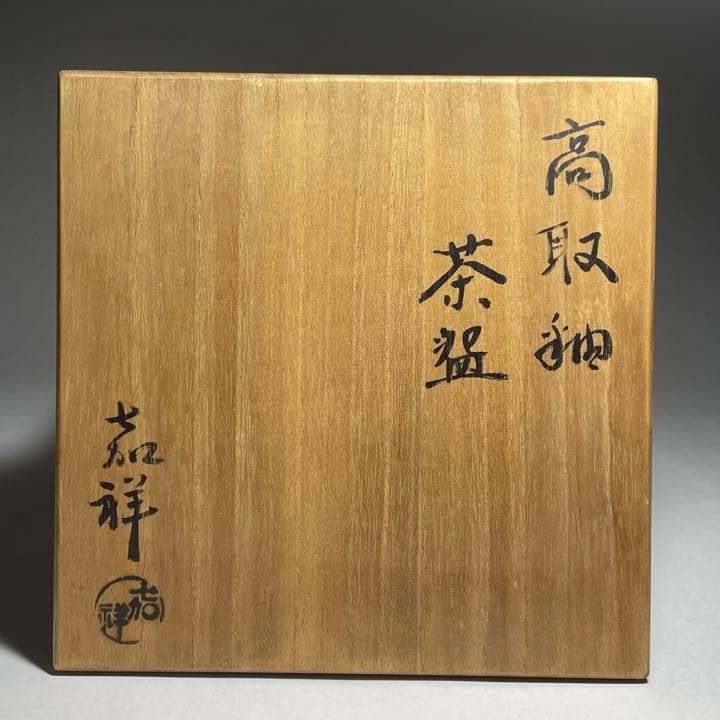 高取釉
茶盌
嘉祥
嘉祥